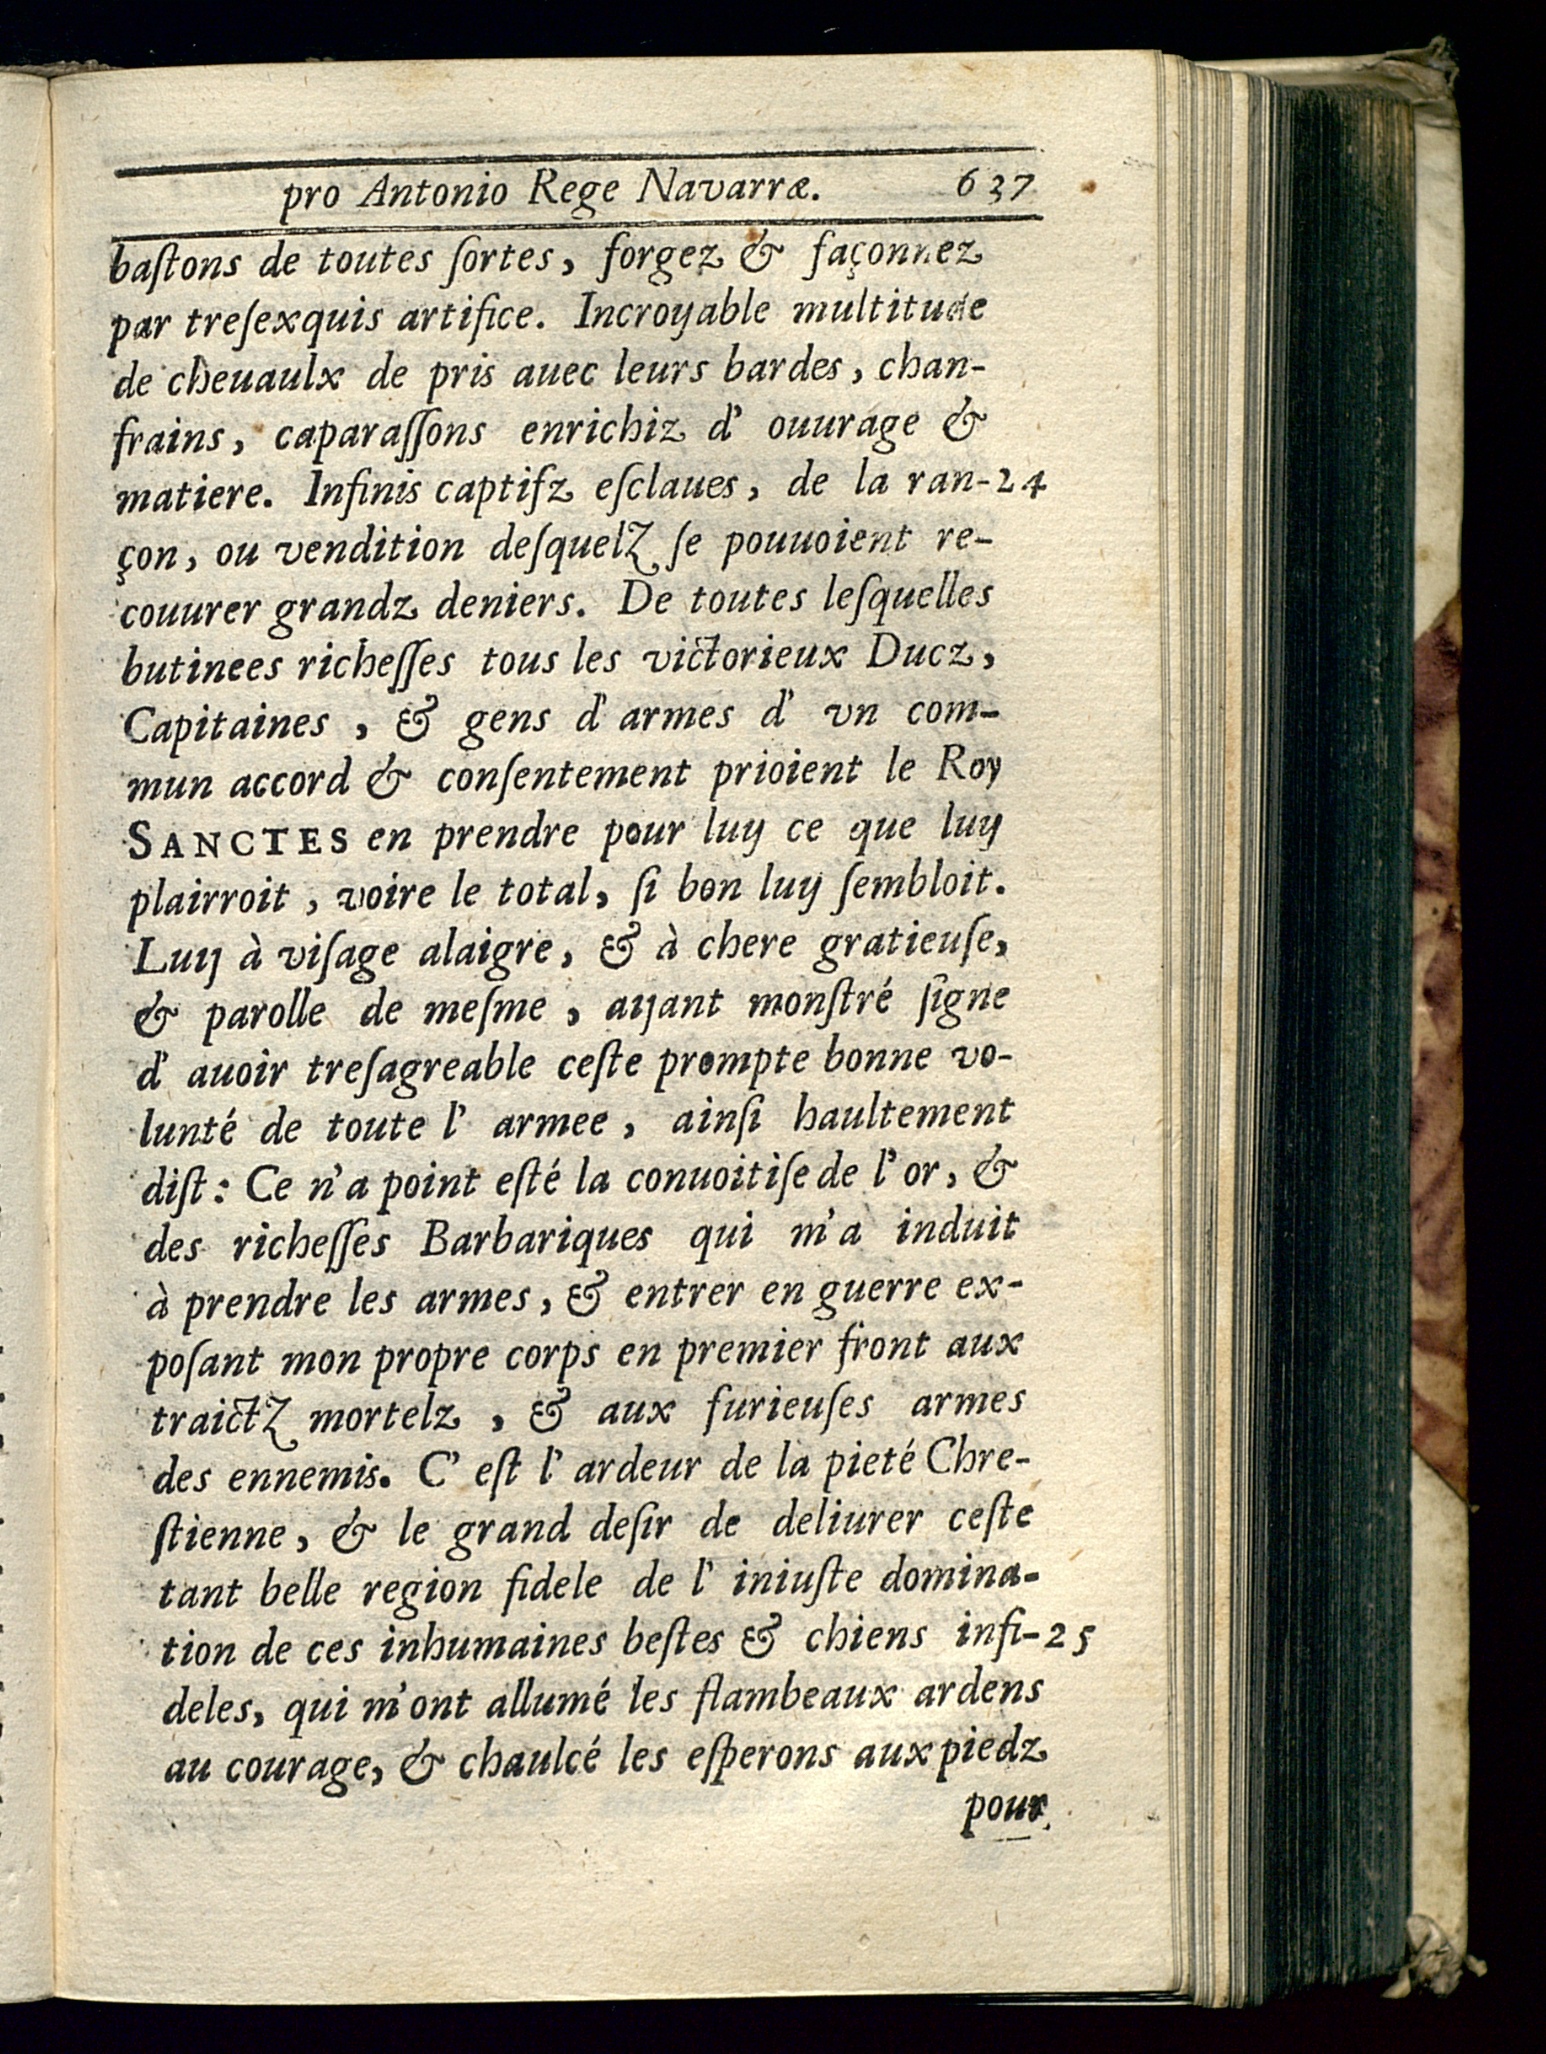 pro Antonio Rege Navarræ. 637
baſtons de toutes ſortes, forgez & façonnez
par treſexquis artifice. Incroyable multitude
de cheuaulx de pris auec leurs bardes, chan-
frains, caparaſſons enrichiz d' ouurage &
matiere. Infinis captifz eſclaues, de la ran- 24
çon, ou vendition deſquelz ſe pouuoient re-
couurer grandz deniers. De toutes leſquelles
butinees richeſſes tous les victorieux Ducz,
Capitaines, & gens d' armes d' vn com-
mun accord & conſentement prioient le Roy
SANCTES en prendre pour luy ce que luy
plairroit, voire le total, ſi bon luy ſembloit.
Luy à viſage alaigre, & à chere gratieuſe,
& parolle de meſme, ayant monſtré ſigne
d' auoir treſagreable ceſte prompte bonne vo-
lunté de toute l' armee, ainſi haultement
diſt: Ce n'a point eſté la conuoitiſe de l'or, &
des richeſſes Barbariques qui m'a induit
à prendre les armes, & entrer en guerre ex-
poſant mon propre corps en premier front aux
traictz mortelz, & aux furieuſes armes
des ennemis. C' eſt l' ardeur de la pieté Chre-
ſtienne, & le grand deſir de deliurer ceſte
tant belle region fidele de l' iniuſte domina-
tion de ces inhumaines beſtes & chiens infi- 25
deles, qui m'ont allumé les flambeaux ardens
au courage, & chaulcé les eſperons aux piedz
pour